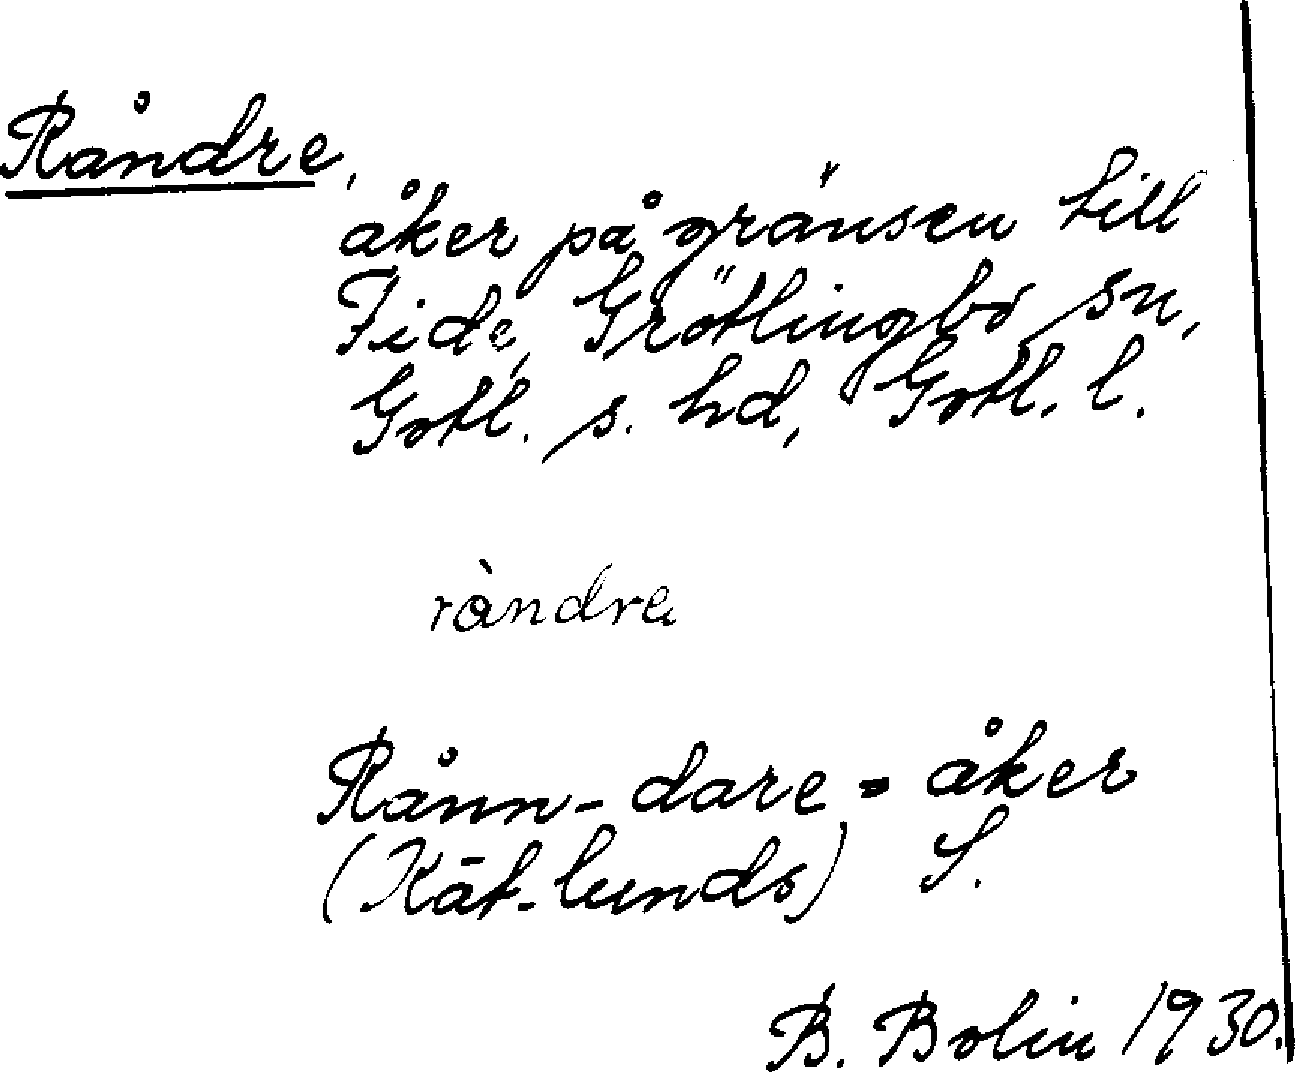 Råndre,
åker på gränsen till
Fide, Grötlingbo sn,
Gotl. s. hd, Gotl. l.
ràndre
Rånn-dare = åker
(Kät-lunds) S.
B. Bolin 1930.